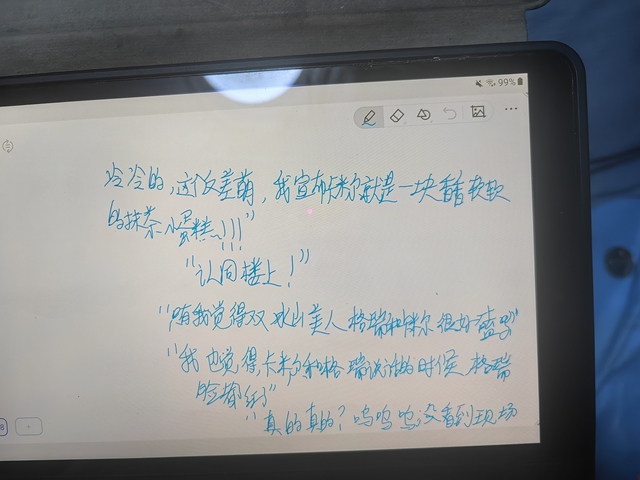 99%
冷冷的,这反差萌,我宣布卡米尔就是一块香香软软
的抹茶小蛋糕~!!!"
"认同楼上!"
我觉得双冰山美人格瑞和卡米尔很好磕
"我也觉得,卡米尔和格瑞说话的时候,格瑞
"真的真的?呜呜呜,没看到现场